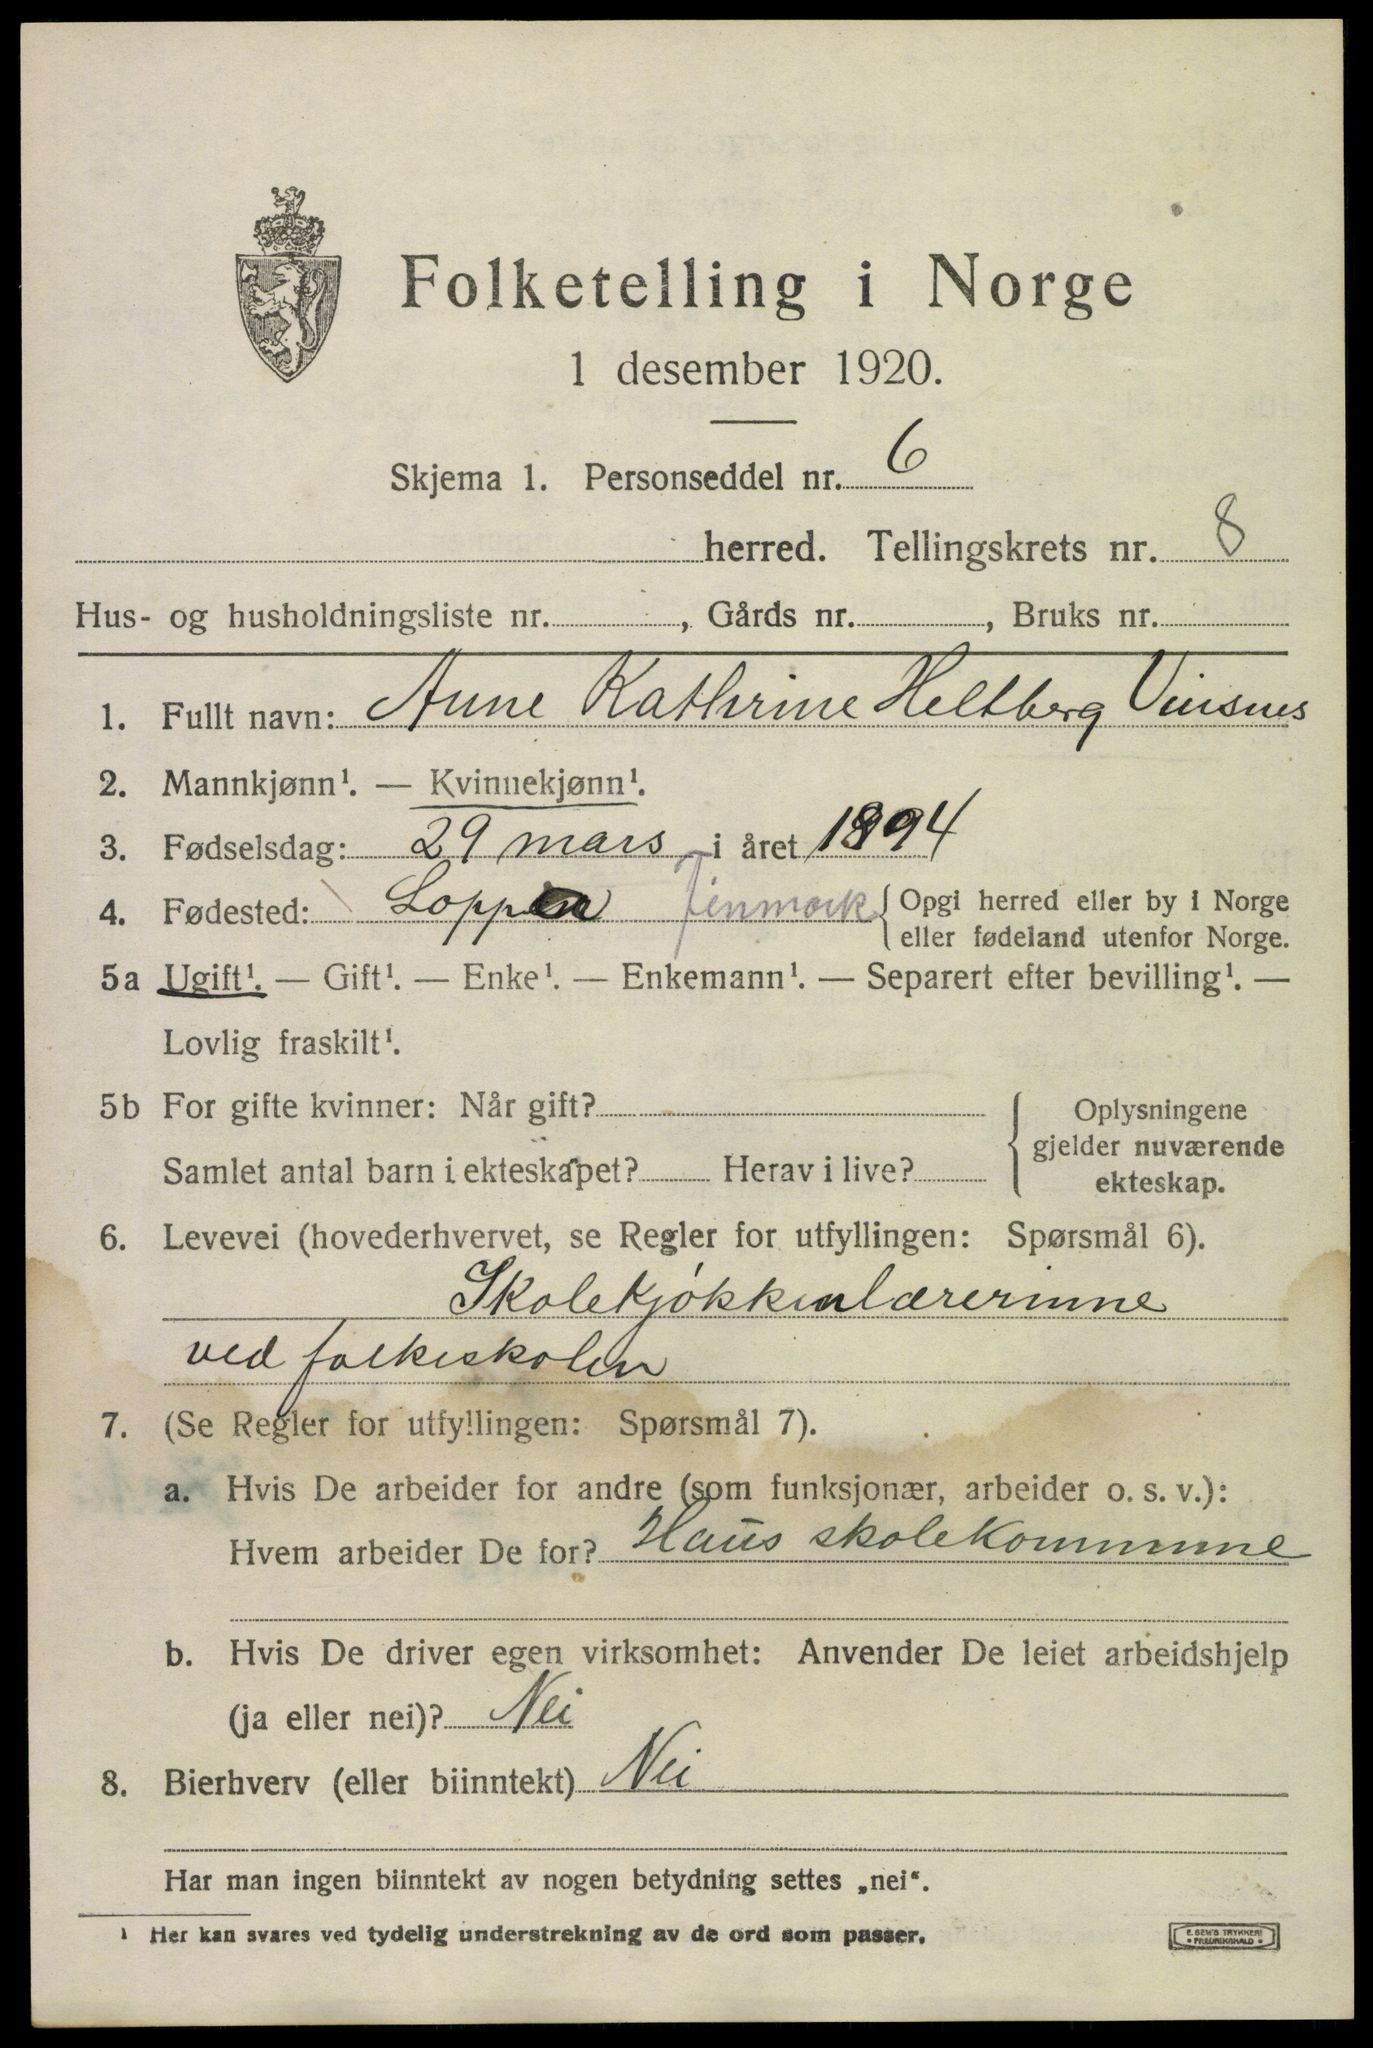 Folketelling i Norge
1 desember 1920.
Skjema 1. Personseddel nr. 6
herred. Tellingskrets nr. 8
Hus- og husholdningsliste nr. , Gårds nr. , Bruks nr.
1. Fullt navn: Anne Kathrine Heltberg Vinsnes
2. Mannkjønn¹. — Kvinnekjønn¹.
3. Fødselsdag: 29 mars i året 1894
4. Fødested: Loppen Finmark { Opgi herred eller by i Norge
eller fødeland utenfor Norge.
5a Ugift¹. — Gift¹. — Enke¹. — Enkemann¹. — Separert efter bevilling¹. —
Lovlig fraskilt¹.
5b For gifte kvinner: Når gift? { Oplysningene
gjelder nuværende
Samlet antal barn i ekteskapet? Herav i live?
ekteskap.
6. Levevei (hovederhvervet, se Regler for utfyllingen: Spørsmål 6).
Skolekjøkkenlærerinne
ved folkeskolen
7. (Se Regler for utfyllingen: Spørsmål 7).
a. Hvis De arbeider for andre (som funksjonær, arbeider o. s. v.):
Hvem arbeider De for? Haus skolekommune
b. Hvis De driver egen virksomhet: Anvender De leiet arbeidshjelp
(ja eller nei)? Nei
8. Bierhverv (eller biinntekt) Nei
Har man ingen biinntekt av nogen betydning settes „nei“.
¹ Her kan svares ved tydelig understrekning av de ord som passer.
E. SEM'S TRYKKERI
• FREDRIKSHALD •